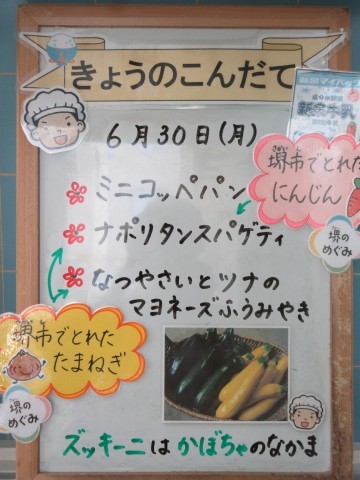 きょうのこんだて
6月30日(月)
ミニコッペパン
堺市でとれた
さかいし
にんじん
堺の
めぐみ
ナポリタンスパゲティ
なつやさいとツナの
マヨネーズふうみやき
堺市でとれた
たまねぎ
堺の
めぐみ
ズッキーニはかぼちゃのなかま